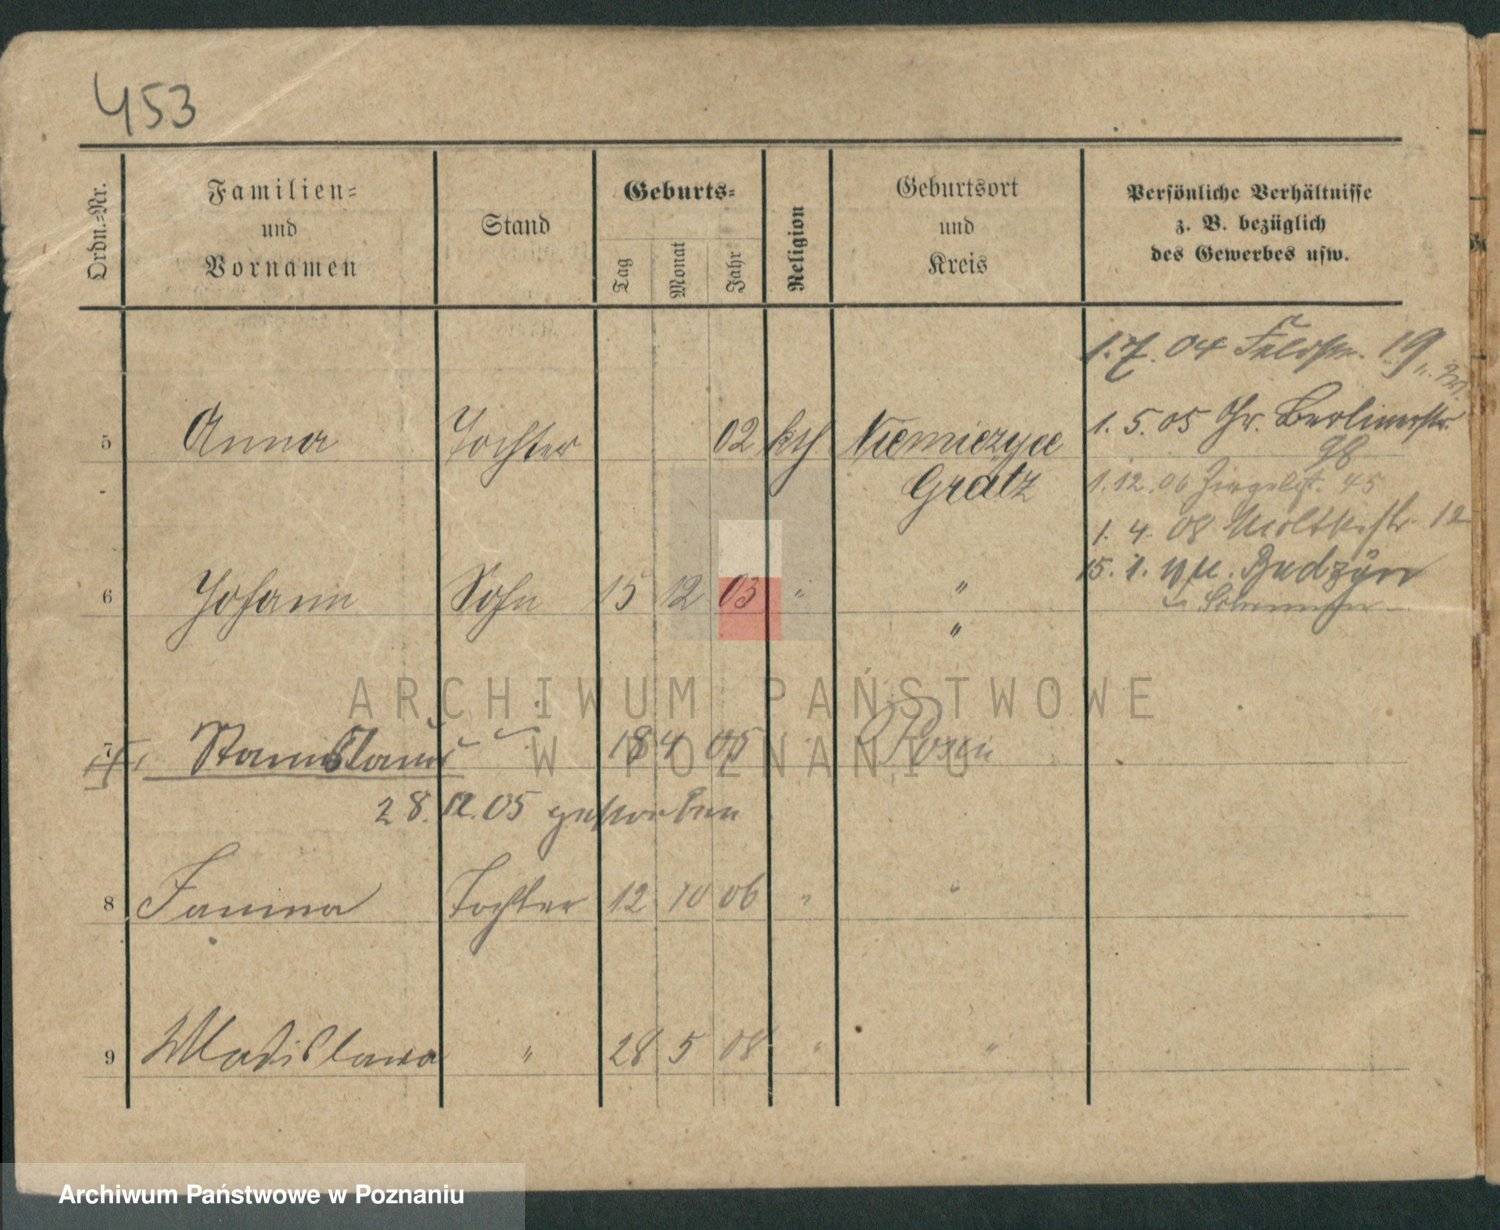 453
Ordn.-Nr.
Familien-
und
Vornamen
Stand
Geburts-
Tag
Monat
Jahr
Religion
Geburtsort
und
Kreis
Persönliche Verhältnisse
z. B. bezüglich
des Gewerbes usw.
1. 7. 04 Feldstr. 19
5 Anna Tochter 02 kth Niemiczyce
Grätz
1. 5. 05 Gr. Berlinerstr.
98
1. 12. 06 Ziegelst. 45
1. 4. 08 Moltkestr. 12
6 Johann Sohn 15 12 03 " "
"
15. 1. Budzyn
7 Stanislaus 18 4 05 Posen
28. 12. 05 gestorben
8 Tochter 12 10 06 " "
9 Wladislawa " 28 5 08 " "
ARCHIWUM PAŃSTWOWE
W POZNANIU
Archiwum Państwowe w Poznaniu